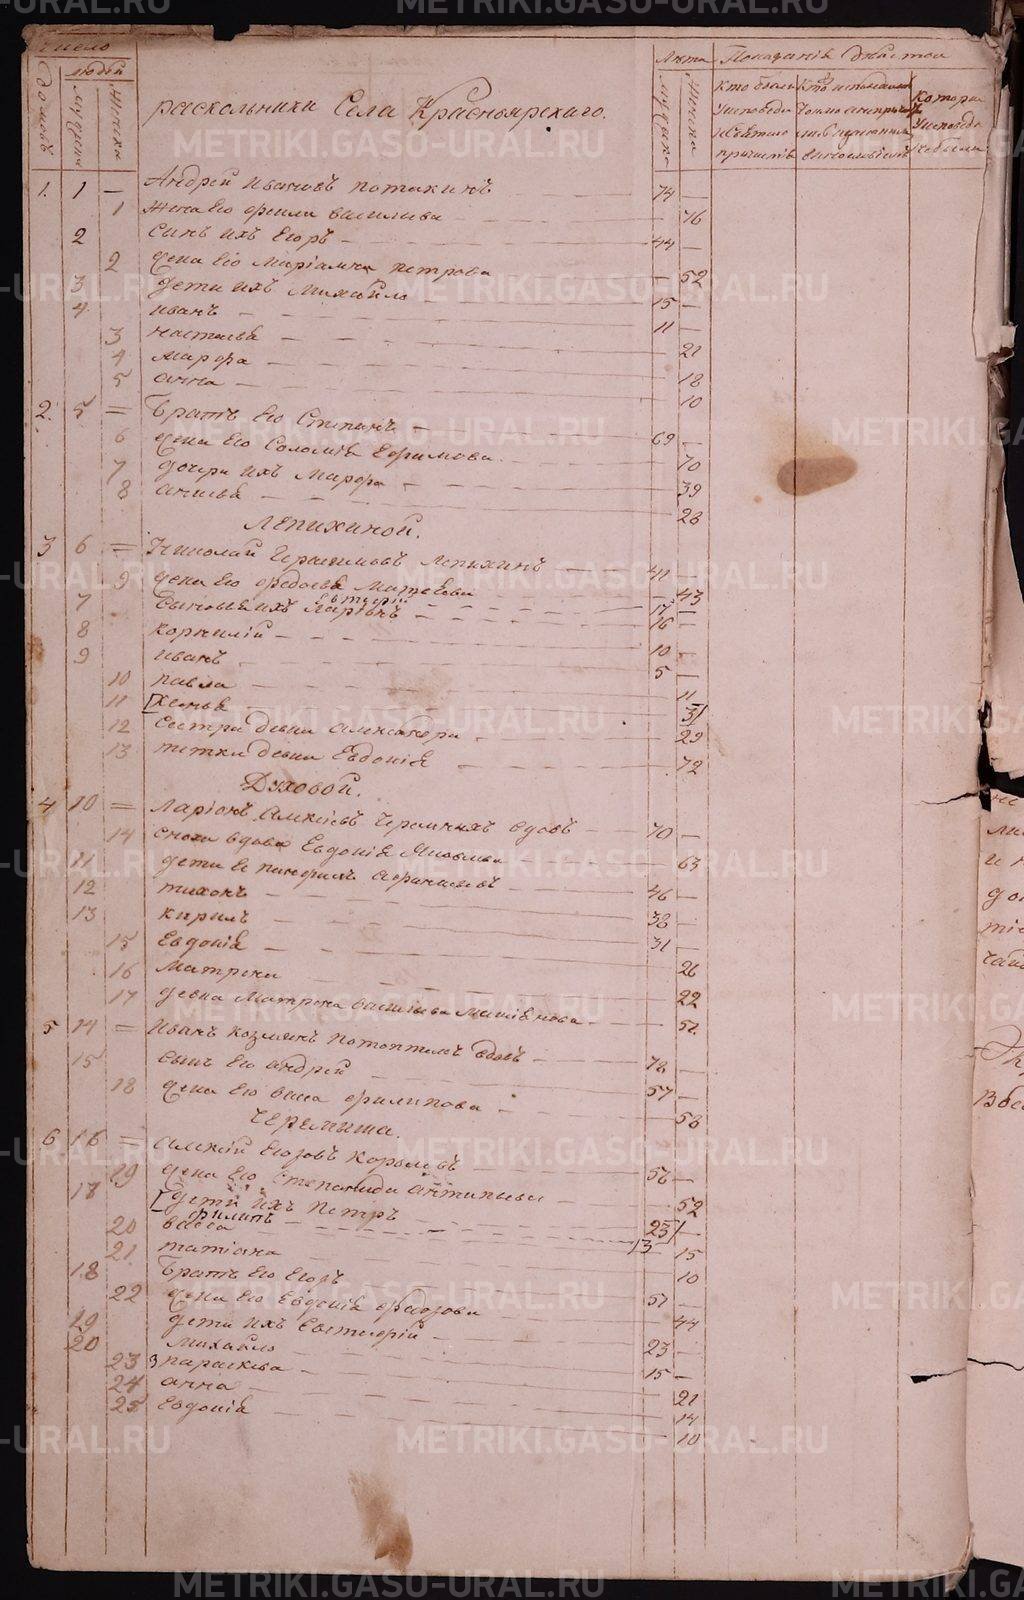 Число
домовъ
людей
мужска
женска
раскольники Села Красноярскаго.
Лѣта
мужска
женска
Показаніе бытія
Кто были у исповеди и святаго причастія
Которые у исповеди не были
1. 1 — Андрей Ивановъ потакинъ 74 —
1 жена его васильева 76
2 сынъ ихъ Егоръ 44 —
2 жена его Маріамна петрова 52
3 дети ихъ Михайло 15 —
4 иванъ 11 —
3 настасья 21
4 марфа 18
5 анна 10
2. 5 = братъ его Степанъ 69 —
6 жена его Соломія Ефимова 70
7 дочери ихъ Марфа 39
8 анисья 28
Лепихиной.
3 6 = Николай Герасимовъ Лепихинъ 41 —
9 жена его федосья Матвеева 43
евстафій 17
7 сыновья ихъ Ларіонъ 16 —
8 корнилій 10 —
9 иванъ 5 —
10 павла 11
11 [ксенья 3]
12 сестра девка александра 29
13 тетка девка Евдокія 72
Духовой.
4 10 = Ларіонъ Алексеевъ Черемныхъ вдовъ 70 —
14 сноха вдова Евдокія Яковлева 63
11 дети ее панфилъ афанасьевъ 46 —
12 тихонъ 38 —
13 кирилъ 31 —
15 Евдокія 26
16 матрена 22
17 девка Матрена васильева 52
5 14 = Иванъ козминъ вдовъ 78 —
15 сынъ его андрей 57 —
18 жена его васса филипова 58
Черемыша.
6 16 = алексій Егоровъ Королевъ 56 —
19 жена его Степанида антипьева 52
17 [дети ихъ Петръ 25] —
филипъ 13
20 васса 15
21 татіана 10
18 братъ его Егоръ 51 —
22 жена его Евдокія федорова 44
19 дети ихъ Евстафій 23 —
20 михайло 15 —
23 параскева 21
24 анна 14
25 евдокія 10
METRIKI.GASO-URAL.RU